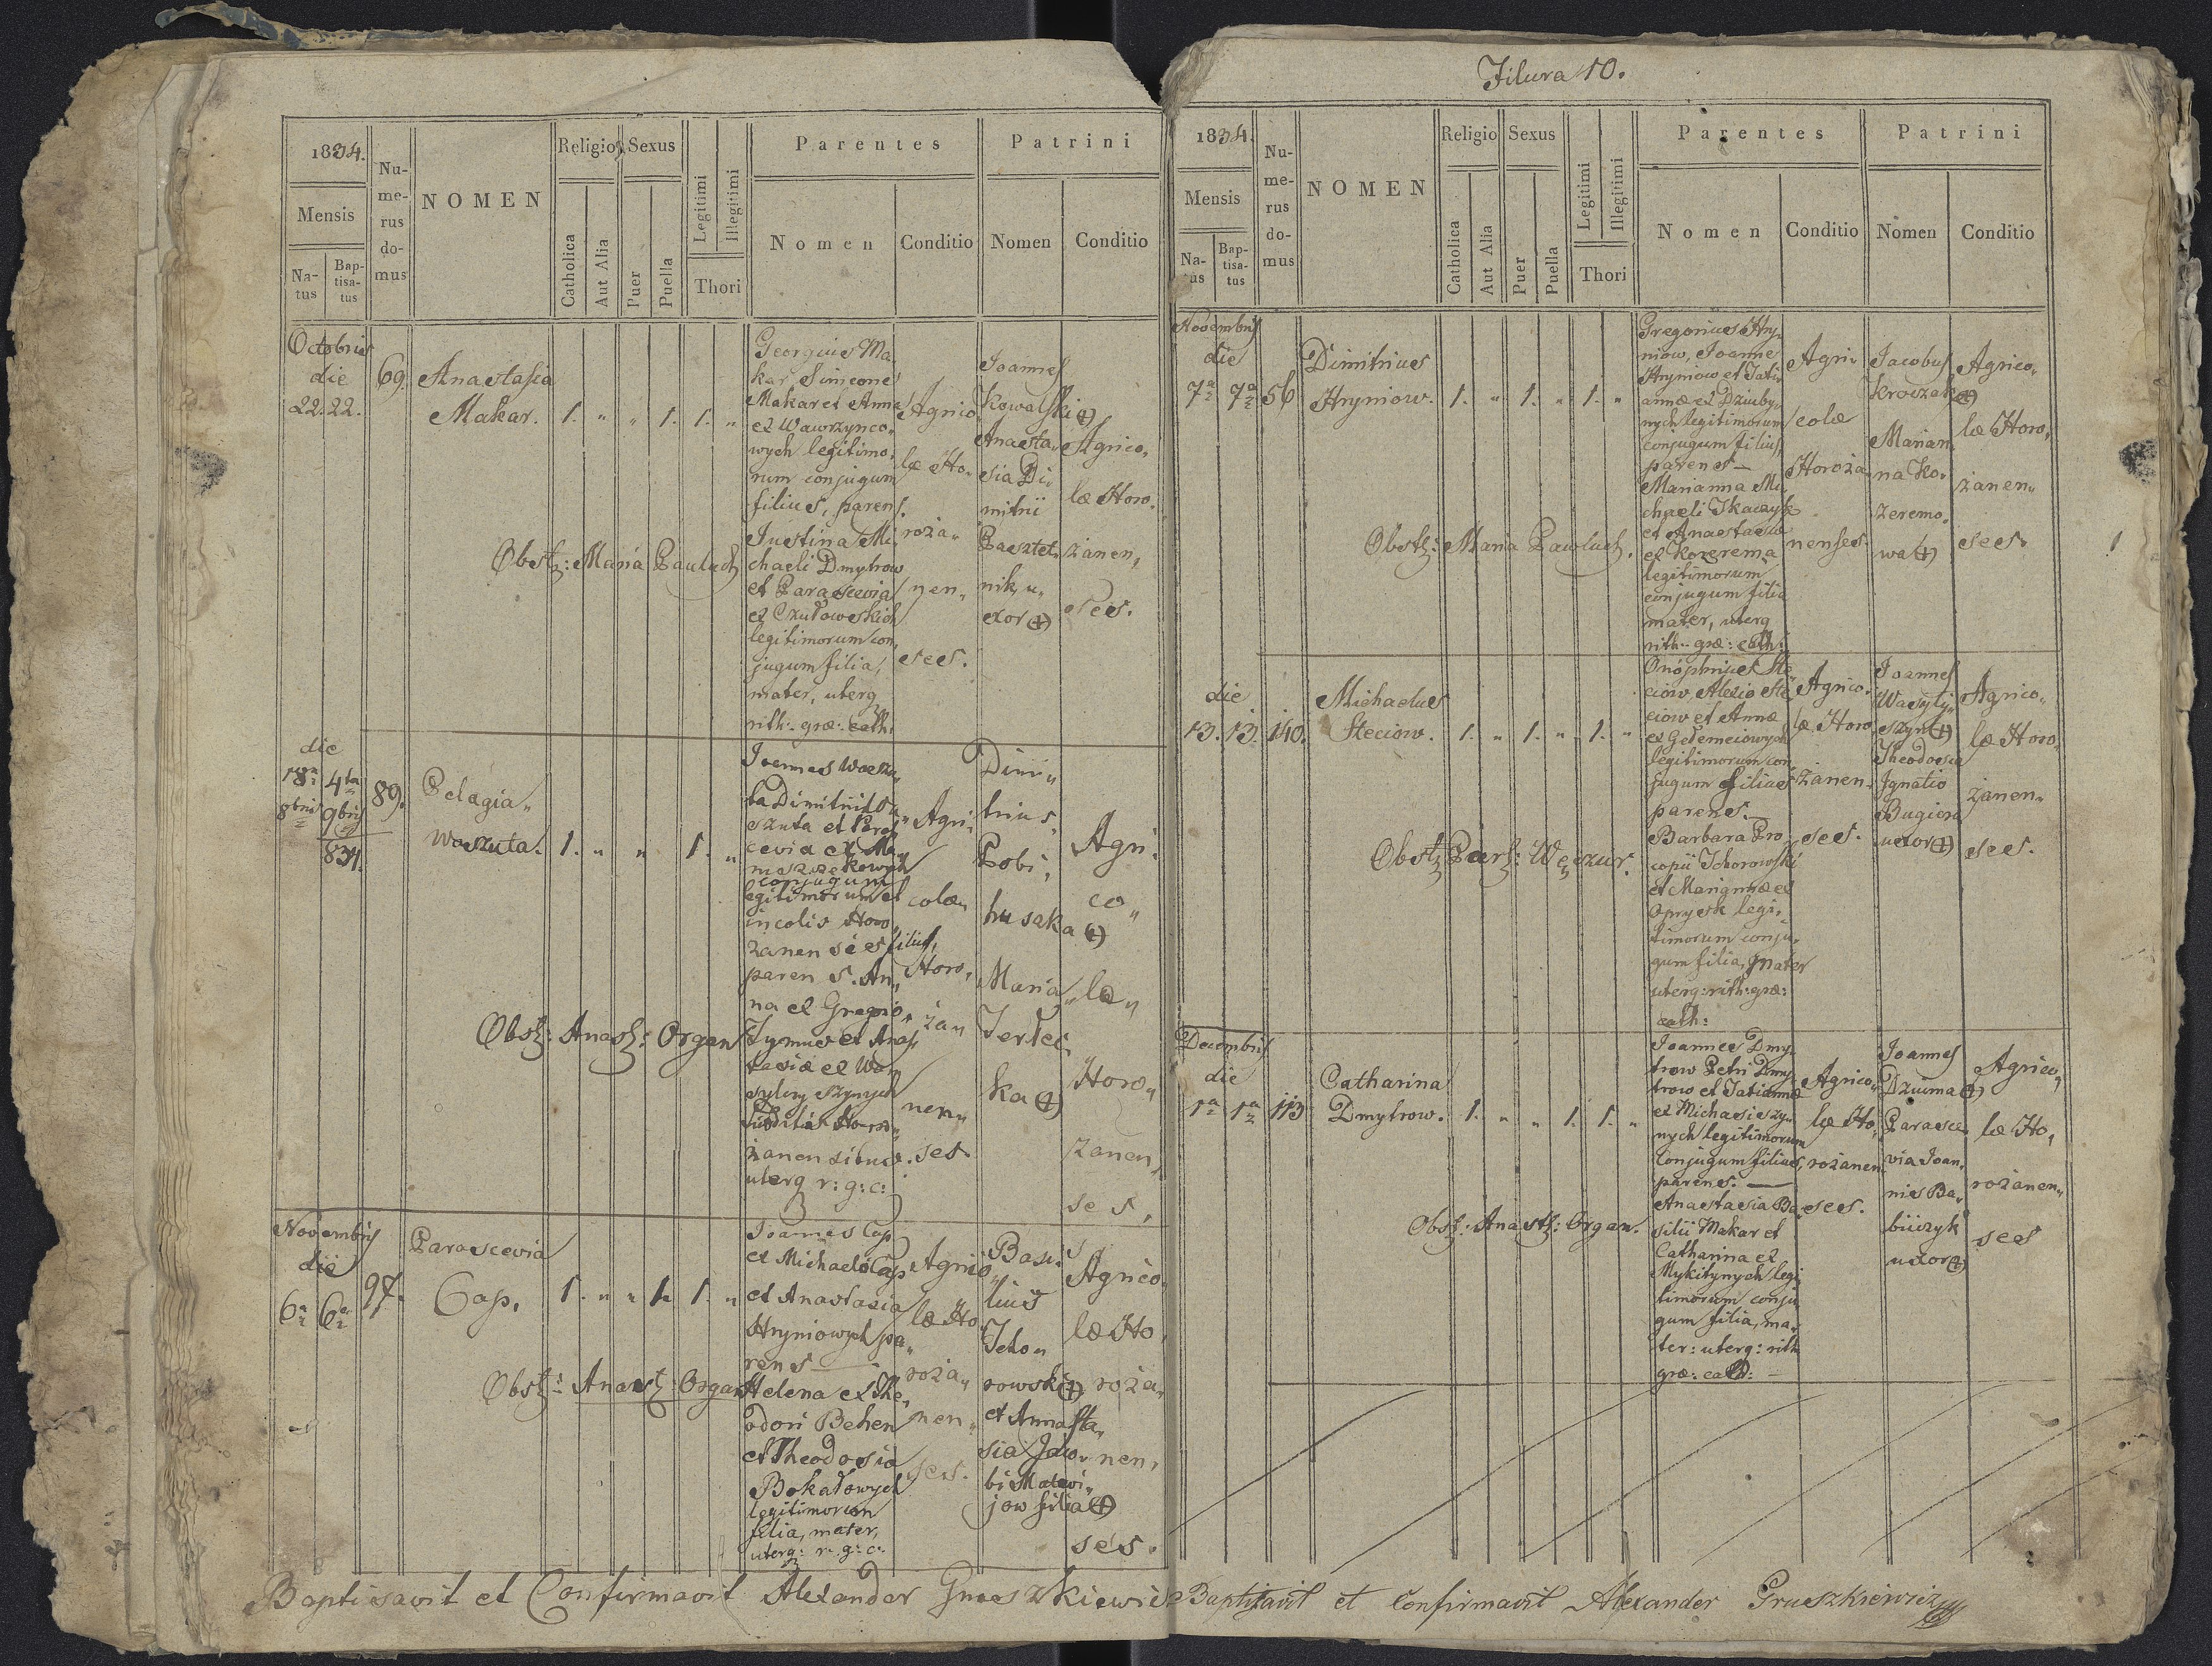 1834.
Mensis
Na-
tus
Bap-
tisa-
tus
Nu-
me-
rus
do-
mus
NOMEN
Religio
Catholica
Aut Alia
Sexus
Puer
Puella
Legitimi
Illegitimi
Thori
Parentes
Nomen
Conditio
Patrini
Nomen
Conditio
Octobris
die
22. 22.
69.
Anastasia
Makar.
1. " " 1. 1. "
Georgius Ma-
kar Simeone
Makar et Anna
ex Wawrzynco-
wych legitimo-
rum conjugum
filius, parens.
Justina Mi-
chaeli Dmytrow
et Parascevia
ex Czułowskich
legitimorum con-
jugum filia,
mater, uterq
rith: græ: cath:
Agrico
læ Ho-
roża"
nen"
ses.
Joannes
Kowalski (+)
Anasta-
sia Di-
mitrii
Pasztet-
nik, u"
xor (+)
Agrico,
læ Horo.
żanen,
ses.
Obstz: Maria Pauluch
die
18a 4ta
8bris 9bris
834.
89.
Pelagia"
Waszuta.
1. " " 1. "
Joannes Wasz-
ta Dimitrii Wa-
szuta et Paras
cevia ex Ma-
maszekowych
conjugum
legitimorum et
incolis Horo
zanensies filius,
parens. An,
na ex Gregorio
Tymus et Anas
tasiæ ex Wa-
sylyszynych
subditis Horo"
żanensibus.
uterq r: g: c:
Agri-
colæ,
Horo,
za"
nen"
ses
Dimi"
trius,
Pobi,
husaka (+)
Maria"
Tertec,
ka (+)
Agri.
co"
la"
Horo"
zanen,
ses,
Obstz: Anast: Organ
Novembris
die
6a 6a
97.
Parascevia
Cap,
1. " " 1. 1. "
Joannes Cap
et Michaelo Cap
et Anastasia
Hryniowych pa"
rens
Helena ex The,
odori Behen
et Theodosia
Bokałowych
legitimorum
filia, mater,
uterq: r: g: c:
Agrico
læ Ho
roża"
nen"
ses.
Basi-
lius
Icho"
rowski (+)
et Annasta"
sia Jaco-
bi Matwi"
jow filia (+)
Agrico.
læ Ho,
roża"
nen,
ses.
Obstz: Anast: Organ
Baptisavit et Confirmavit Alexander Gruszkiewicz
Filura 10.
1834.
Mensis
Na-
tus
Bap-
tisa-
tus
Nu-
me-
rus
do-
mus
NOMEN
Religio
Catholica
Aut Alia
Sexus
Puer
Puella
Legitimi
Illegitimi
Thori
Parentes
Nomen
Conditio
Patrini
Nomen
Conditio
Novembris
die
7a 7a 56
Dimitrius
Hryniow.
1. " 1. " 1. "
Gregorius Hry-
niow, Joanne
Hryniow et Tati-
annæ ex Dziuby-
nych legitimorum
conjugum filius,
parens —
Marianna Mi-
chaeli Tkaczyk
et Anastasia
ex Kozerema
legitimorum
conjugum filia
mater, uterq
rith: græ: cath:
Agri-
colæ
Horoża-
nenses.
Jacobus
Krowzak (+)
Marian
na Ko-
zeremo-
wa (+)
Agrico,
læ Horo,
żanen"
ses.
Obstz: Maria Pawluch.
die
13. 13. 140.
Michaelus
Steciow.
1. " 1. " 1. "
Onophrius Ste-
ciow, Alexio Ste
ciow et Anna
ex Gełemeiowych
legitimorum con-
jugum filius
parens.
Barbara Pro-
copii Ichorowski
et Mariannæ ex
Oprysk legi-
timorum conju-
gum filia, mater
uterq: rith: græ:
cath:
Agrico-
læ Horo
żanen-
ses.
Joannes
Wasyly-
szyn (+)
Theodosia
Ignatio
Bugiera
uxor (+)
Agrico"
læ Horo,
żanen"
ses.
Obstz Pars: Węczur.
Decembris
die
1a 1a 113
Catharina
Dmytrow.
1. " " 1. 1. "
Joannes Dmy-
trow Petri Dmy-
trow et Tatianna
ex Michasiszy-
nych legitimorum
conjugum filius,
parens. —
Anastasia Ba-
silii Makar et
Catharina ex
Mykitynych legi
timorum conju
gum filia, ma-
ter: uterq: rith
græ: cath: —
Agrico"
læ Ho,
rożanen
ses.
Joannes
Dziuma (+)
Parasce-
via Joan,
nis Ba"
biiczyk
uxor (+)
Agrico,
læ Ho,
rożanen"
ses
Obstz: Anastz: Organ.
Baptizavit et Confirmavit Alexander Gruszkiewicz